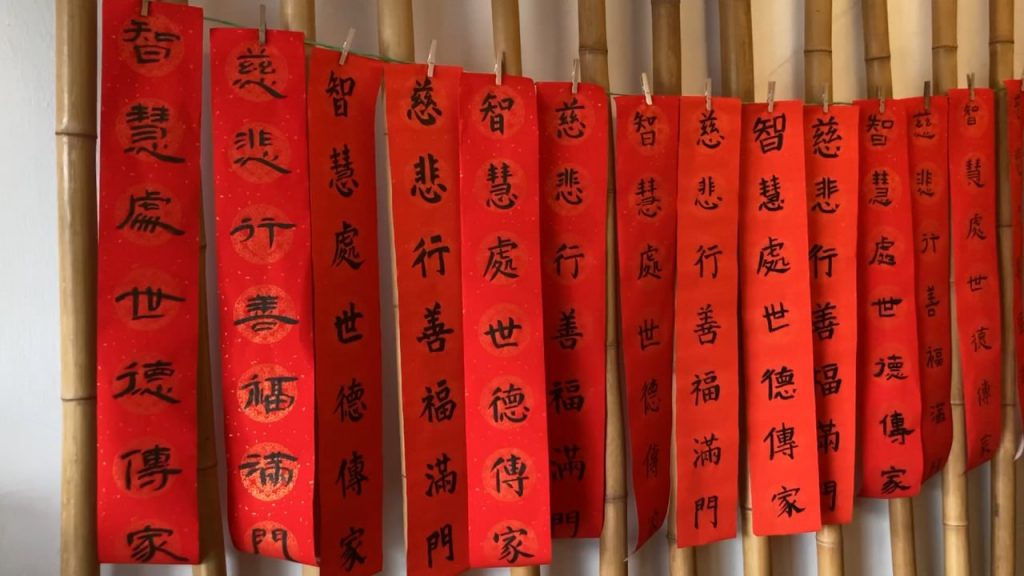 智慧處世德傳家
慈悲行善福滿門
智慧處世德傳家
慈悲行善福滿門
智慧處世德傳家
慈悲行善福滿門
智慧處世德傳家
慈悲行善福滿門
智慧處世德傳家
慈悲行善福滿門
智慧處世德傳家
慈悲行善福滿
智慧處世德傳家